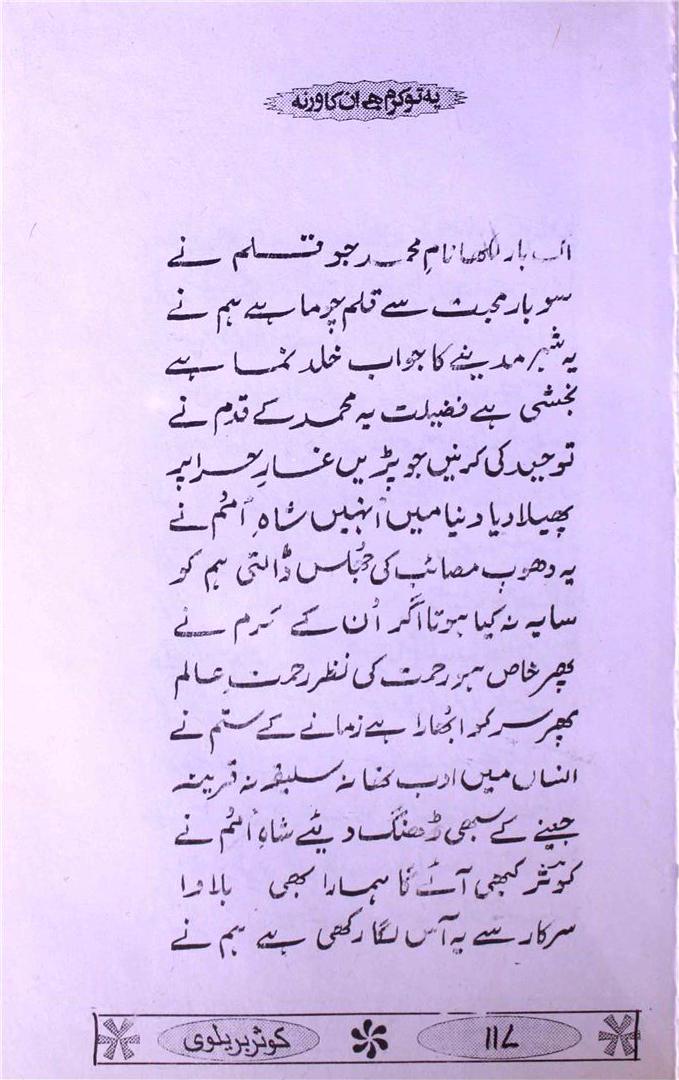 یہ تو کرم ہے ان کا ورنہ
اک بار لکھا نامِ محمد جو قلم نے
سو بار محبت سے قلم چوما ہے ہم نے
یہ شہر مدینے کا جواب خلد نما ہے
بخشی ہے فضیلت یہ محمد کے قدم نے
توحید کی کرنیں جو پڑیں غارِ حرا پر
پھیلا دیا دنیا میں اُنہیں شاہِ اُمم نے
یہ دھوپ مصائب کی جُھلس ڈالتی ہم کو
سایہ نہ کیا ہوتا اگر اُن کے کرم نے
پھر خاص ہو رحمت کی نظر رحمتِ عالم
پھر سر کو ابُھارا ہے زمانے کے ستم نے
انساں میں ادب تھا نہ سلیقہ نہ قرینہ
جینے کے سبھی ڈھنگ دیئے شاہِ اُمم نے
کوثر کبھی آئے گا ہمارا بھی بلاوا
سرکار سے یہ آس لگا رکھی ہے ہم نے
کوثر بریلوی
۱۱۷